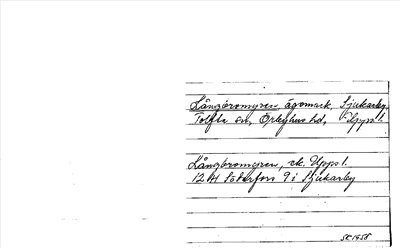 Långöromyren, ägomark, Sjukarby,
Tolfta sn, Örbyhus hd, Uppl.
Långöromyren, ek. Uppsl.
12 H1 Söderfors 9 i Sjukarby
SK 1958